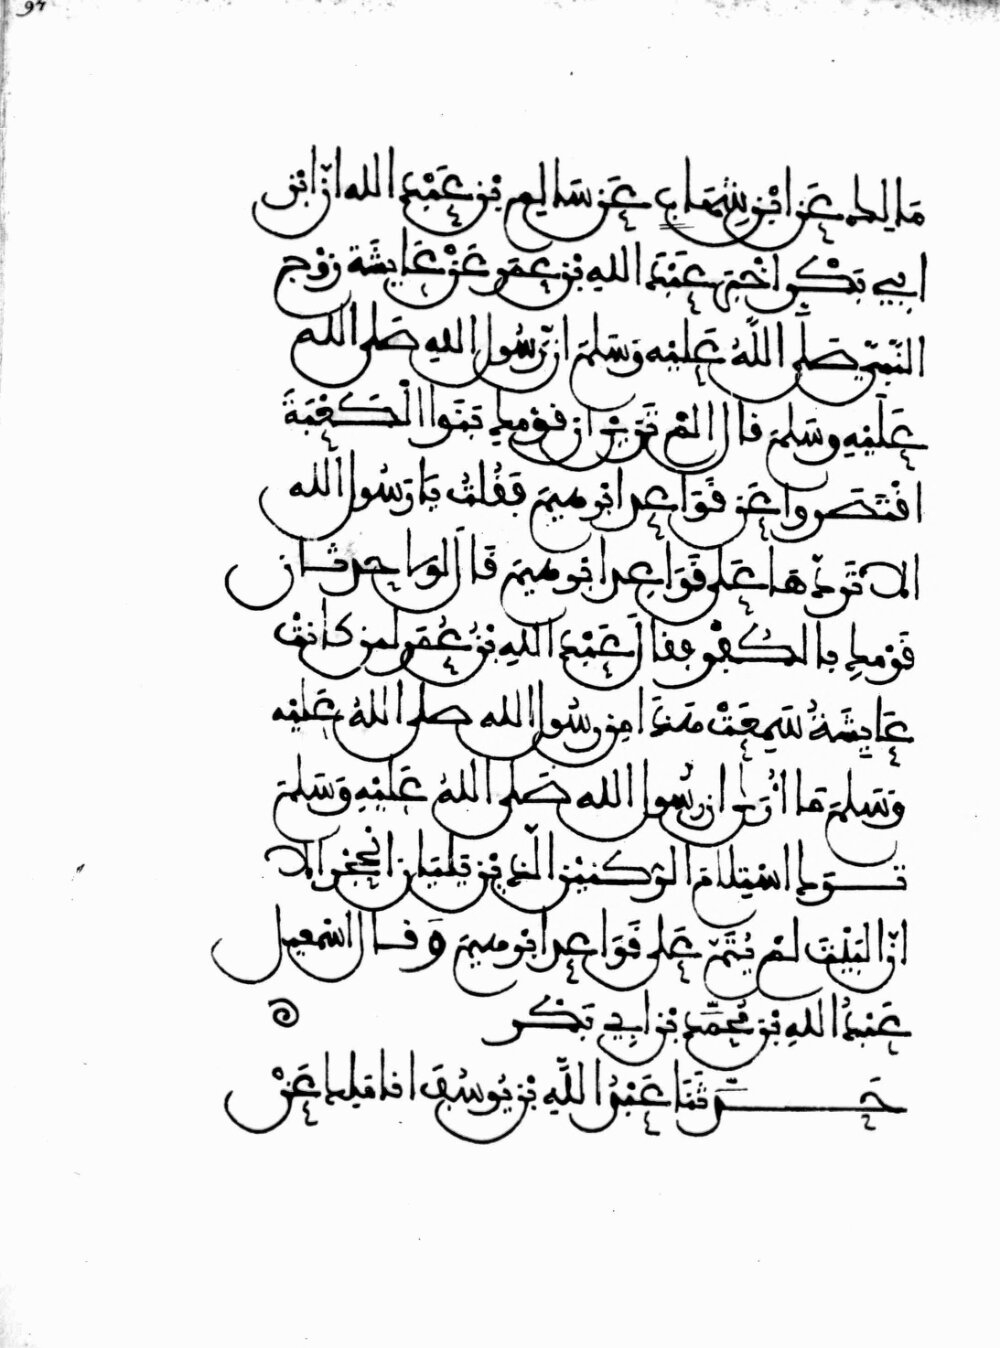 97
مَالِك عَنِ ابْنِ شِهَاب عَن سَالِم بْنِ عَبْدِ الله انّ ابْن
ابِي بَكْر اخْبَرَ عَبْدَ اللهِ بْنَ عُمَر عَنْ عَايِشَة زَوْج
النَّبِيّ صَلَّى اللَّهُ عَلَيْه وَسَلَّمَ انّ رَسُول اللهِ صَلى الله
عَلَيْهِ وسَلمَ قال المْ تَرَيْ ان قوْمكِ بَنَوا الْكَعْبَةَ
اقْتَصَروا عَن قَوَاعِد ابْرهِيمَ فَقُلتُ يَا رَسُول الله
الا تَردّهَا عَلى قَوَاعِد ابْرهِيمَ قَالَ لوْلا حِدْثان
قَوْمكِ بالكُفْر فقالَ عَبْد اللهِ بْنُ عُمَر لَئِن كانتْ
عَايِشَةُ سَمِعَتْ هَذَا مِن رسُول الله صَلى اللهُ عَليْه
وَسَلمَ مَا ارَى ان رسُول الله صَلى اللهُ عَلَيْهِ وَسَلمَ
تَرَك اسْتِلَامَ الرّكنَيْنِ الّذيْنِ يَلِيَان الْحِجْرَ الا
انّ البَيْتَ لمْ يُتَمّمْ عَلى قَوَاعِد ابْرهِيمَ وَقال اسْمعِيل
عَبْدُ اللهِ بْن مُحَمّد بْن ابِي بَكْر
حَدّثَنَا عَبْدُ اللَّهِ بْن يُوسُفَ انا مَالِك عَنْ